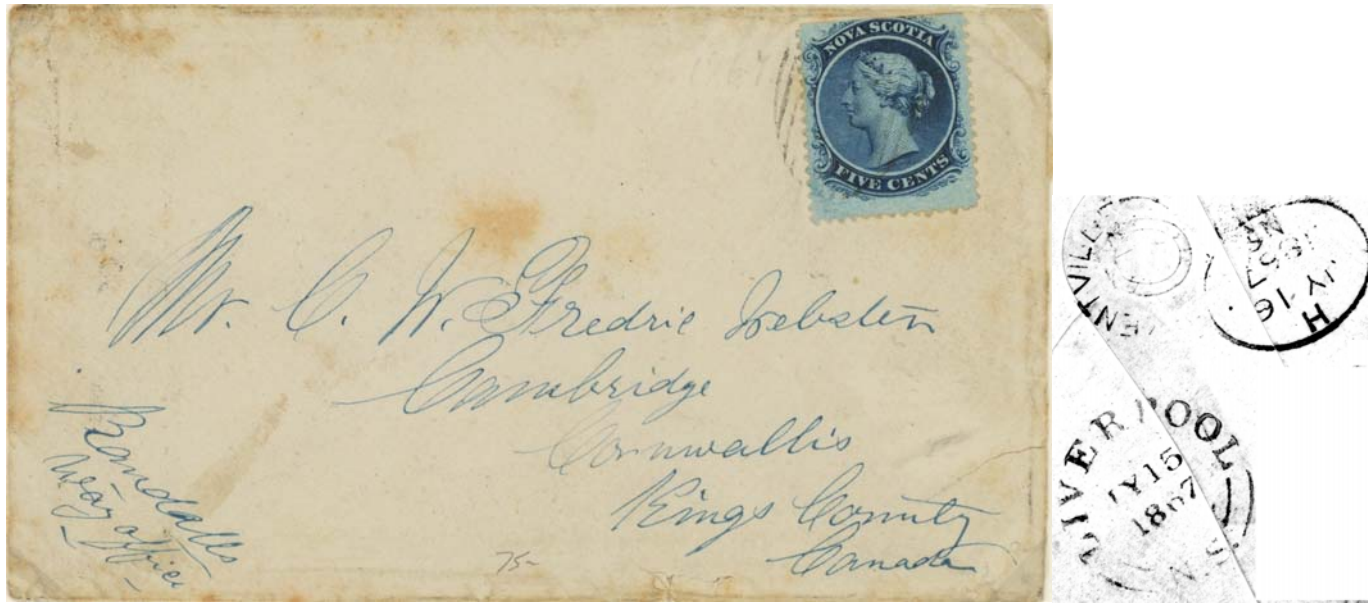 NOVA SCOTIA
FIVE CENTS
Mr. C. W. Fredric Webster
Cambridge
Cornwallis
Kings County
Canada
Randalls
way office
75-
ENTVILL
H
JY 16
1867
NS
LIVERPOOL
JY 15
1867
N.S